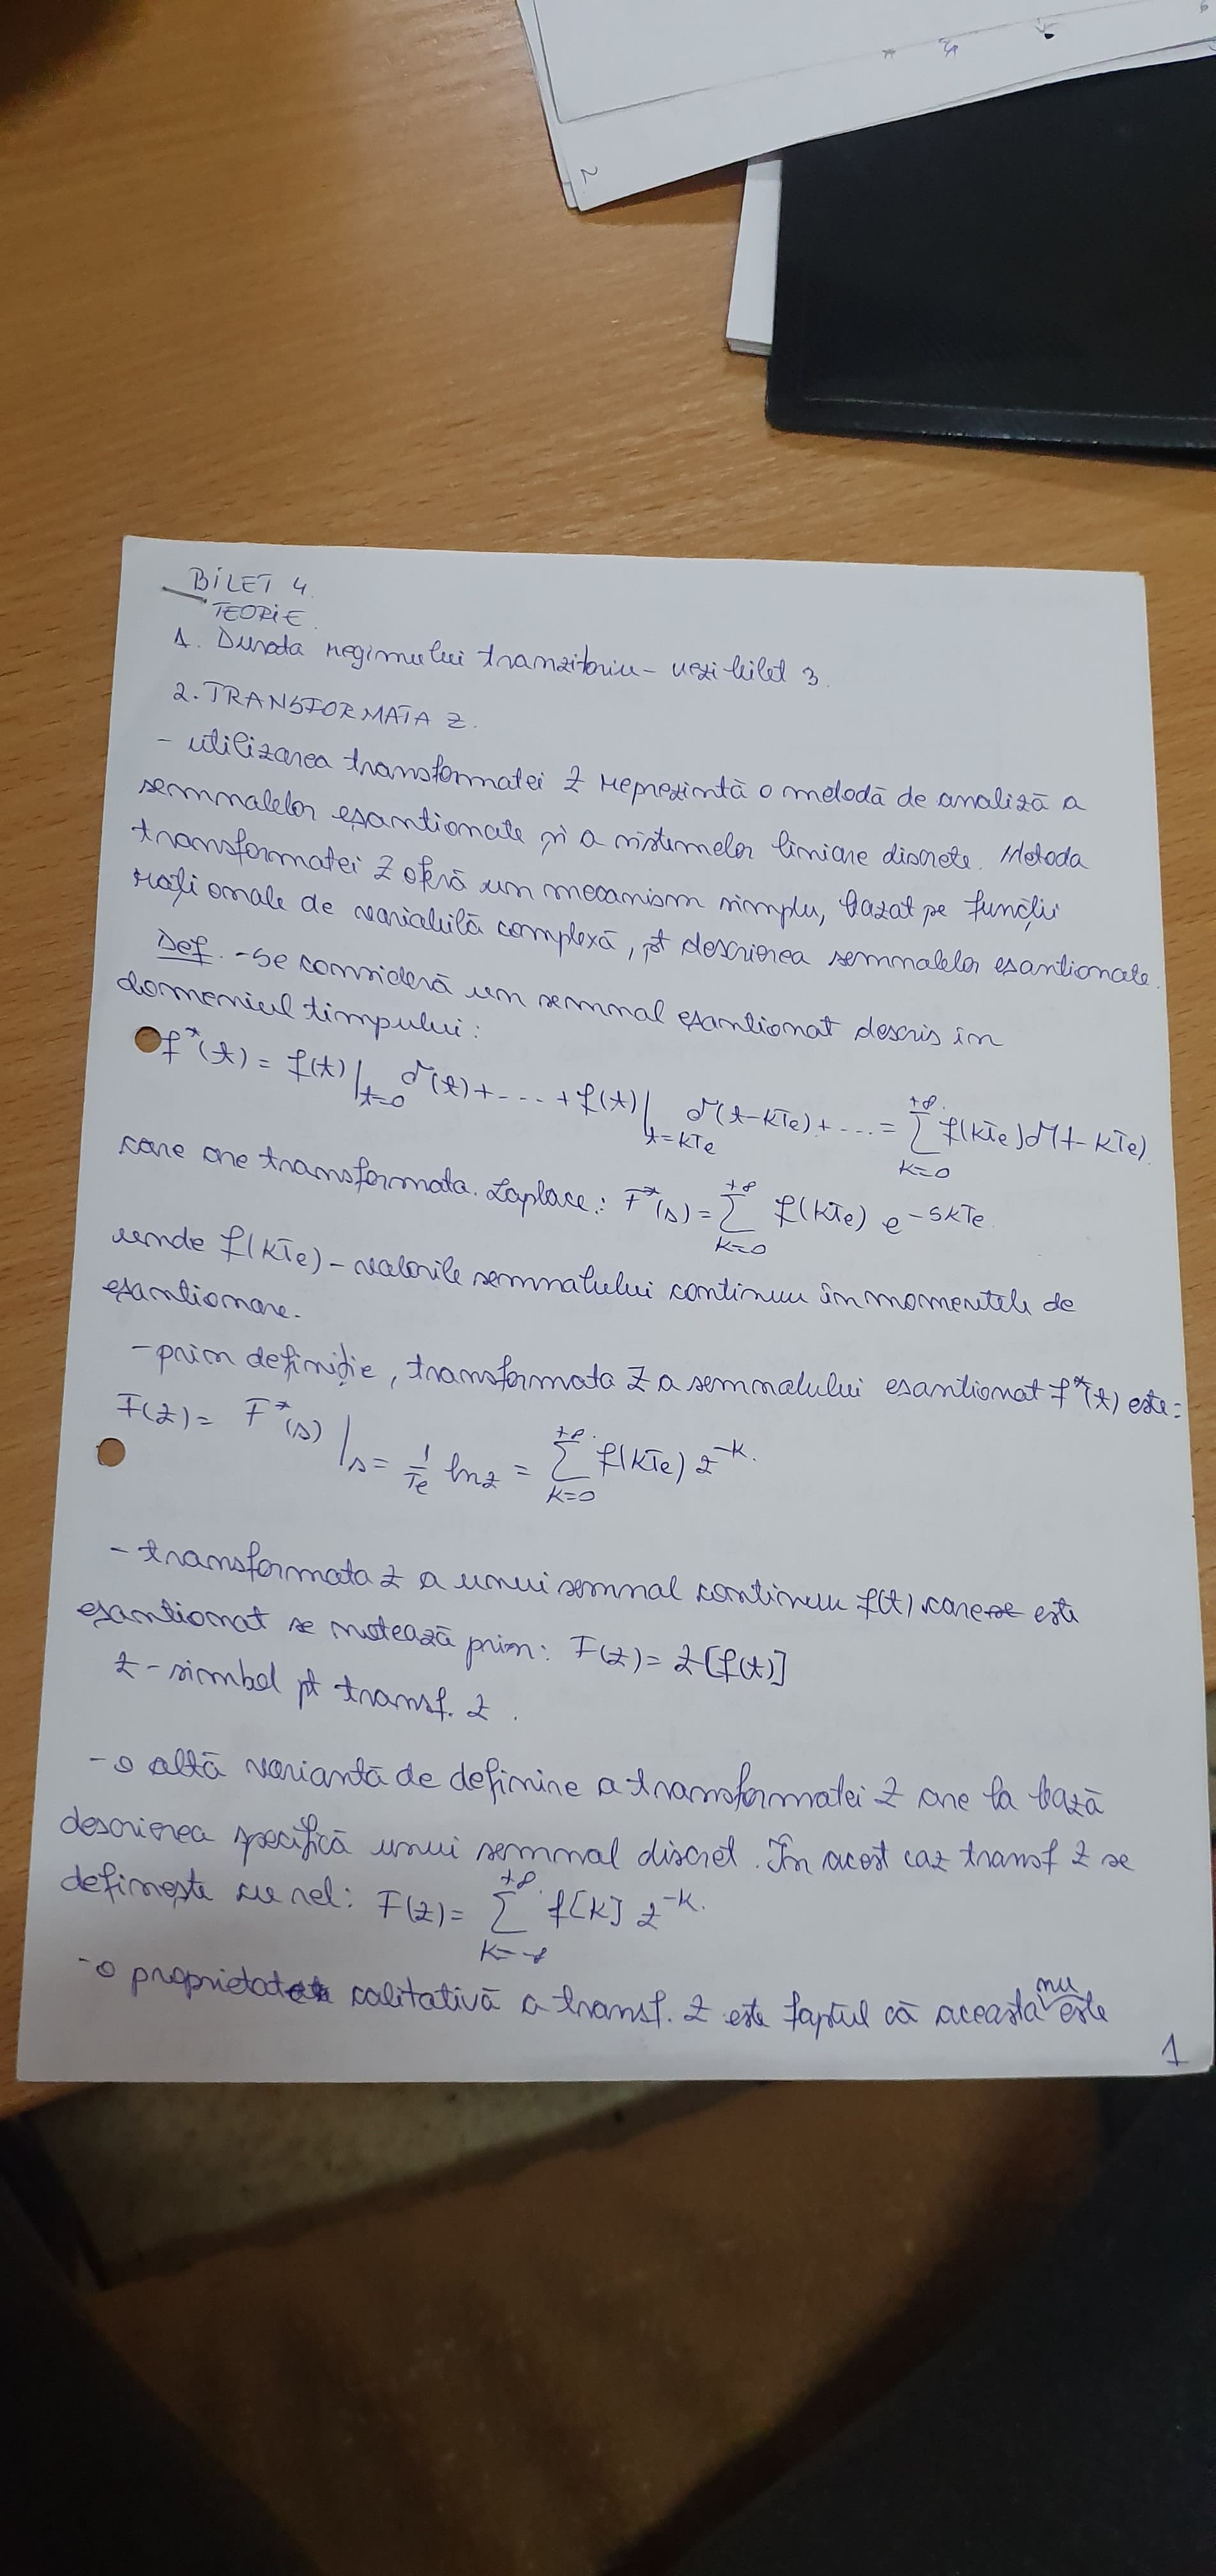 BILET 4.
TEORIE.
1. Durata regimului tranzitoriu - vezi bilet 3.
2. TRANSFORMATA Z.
- utilizarea transformatei Z reprezintă o metodă de analiză a
semnalelor eșantionate și a sistemelor liniare discrete. Metoda
transformatei Z oferă un mecanism simplu, bazat pe funcții
raționale de variabilă complexă, pt descrierea semnalelor esantionate.
Def. - Se consideră un semnal eșantionat descris in
domeniul timpului:
f*(t) = f(t)|t=0 δ(t) + .... + f(t)|t=kTe δ(t-kTe) + .... = ∑k=0+∞ f(kTe) δ(t-kTe)
care are transformata Laplace: F*(s) = ∑k=0+∞ f(kTe) e-skTe
unde f(kTe) - valorile semnalului continuu în momentele de
eșantionare.
- prin definiție, transformata Z a semnalului esantionat f*(t) este:
F(z) = F*(s)|s = 1/Te ln z = ∑k=0+∞ f(kTe) z-k.
- transformata Z a unui semnal continuu f(t) care se este
eșantionat se notează prin: F(z) = Z[f(t)]
Z - simbol pt transf. Z.
- o altă variantă de definire a transformatei Z are la bază
descrierea specifică unui semnal discret. În acest caz transf Z se
definește cu rel: F(z) = ∑k=-∞+∞ f[k] z-k.
- o proprietate calitativă a transf. Z este faptul că aceasta nu este
1
2